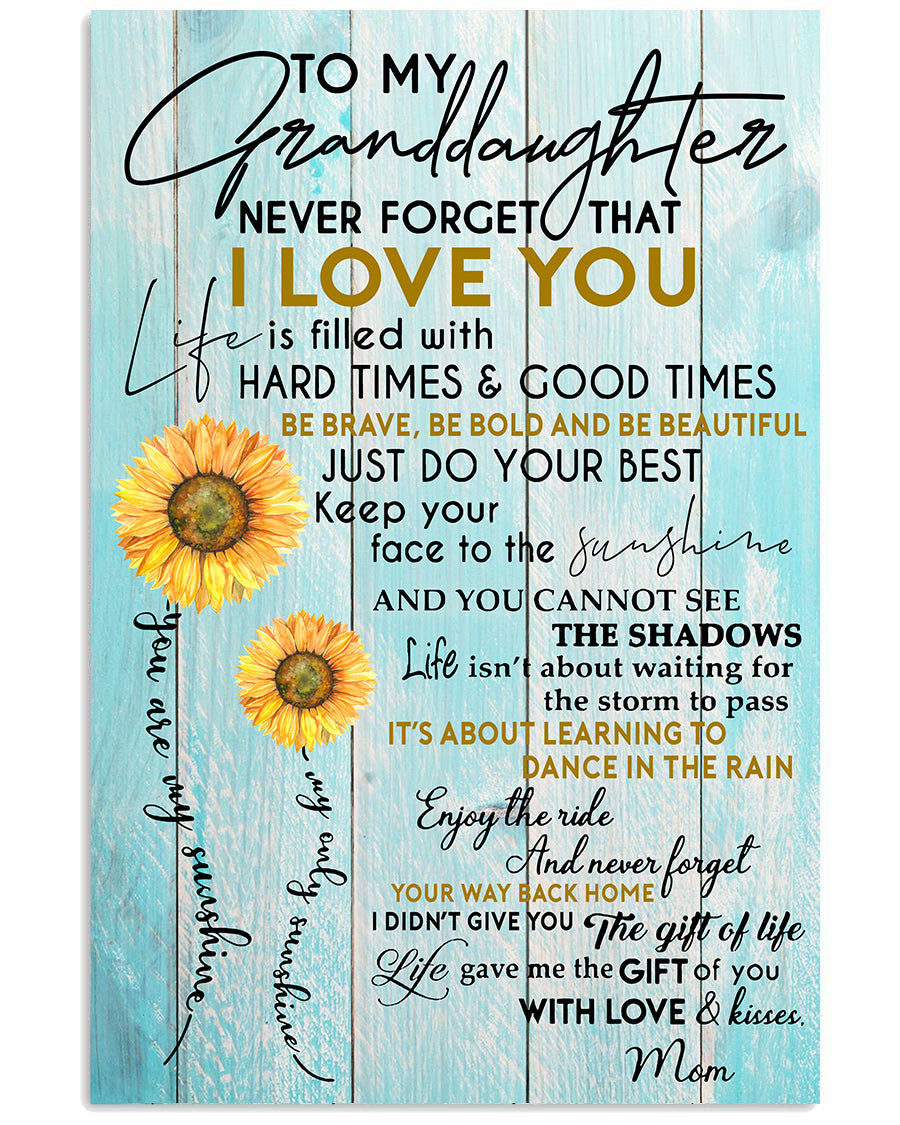 TO MY
Granddaughter
NEVER FORGET THAT
I LOVE YOU
Life is filled with
HARD TIMES & GOOD TIMES
BE BRAVE, BE BOLD AND BE BEAUTIFUL
JUST DO YOUR BEST
Keep your
face to the sunshine
AND YOU CANNOT SEE
THE SHADOWS
Life isn't about waiting for
the storm to pass
IT'S ABOUT LEARNING TO
DANCE IN THE RAIN
Enjoy the ride
And never forget
YOUR WAY BACK HOME
I DIDN'T GIVE YOU The gift of life
Life gave me the GIFT of you
WITH LOVE & kisses,
Mom
you are my sunshine
my only sunshine